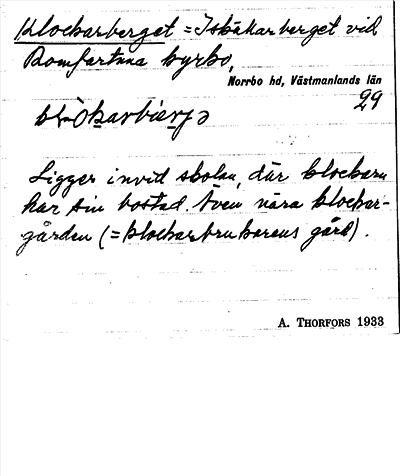 Klockarberget = Isbäckarberget vid
Romfartuna kyrka,
Norrbo hd, Västmanlands län
29
Ligger invid skolan, där klockarn
har sin bostad. Även nära klockar-
gården (= klockarbrukarens gård).
A. THORFORS 1933